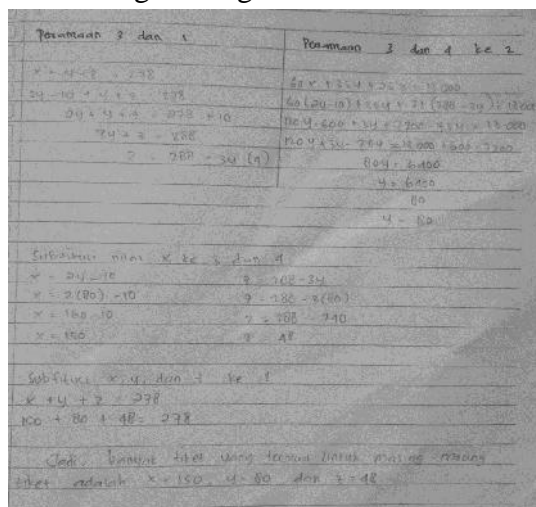 Persamaan 3 dan 1
x + y + z = 278
2y - 10 + y + z = 278
2y + y + z = 278 + 10
3y + z = 288
z = 288 - 3y (4)
Persamaan 3 dan 4 ke 2
60 x + 35 y + 25 z = 13.000
60 (2y - 10) + 35 y + 25 (288 - 3y) = 13.000
80 y = 6400
y = 6400
80
y = 80
Subtitusi nilai x ke 3 dan 4
x = 2y - 10
x = 2(80) - 10
x = 160 - 10
x = 150
z = 288 - 3y
z = 288 - 3(80)
z = 288 - 240
z = 48
Subtitusi x, y, dan z ke 1
x + y + z = 278
150 + 80 + 48 = 278
Jadi, banyak tiket yang terjual untuk masing-masing
tiket adalah x = 150, y = 80 dan z = 48